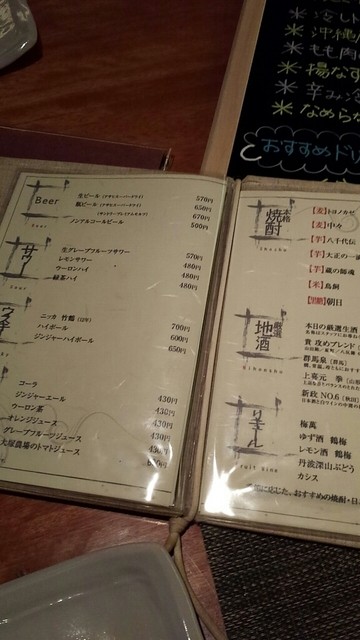 Beer
Beer
生ビール(アサヒスーパードライ) 570円
瓶ビール(アサヒスーパードライ) 650円
670円
ノンアルコールビール 500円
サワー
生グレープフルーツサワー 570円
レモンサワー 480円
ウーロンハイ 480円
緑茶ハイ 480円
ウイスキー
ニッカ 竹鶴 700円
ハイボール 600円
ジンジャーハイボール 650円
コーラ 430円
ジンジャーエール 430円
ウーロン茶 430円
オレンジジュース 430円
グレープフルーツジュース 450円
大塚農場のトマトジュース
本格
焼酎
shochu
【麦】トヨノカゼ
【麦】中々
【芋】八千代伝
【芋】大正の一滴
【芋】蔵の師魂
【米】鳥飼
【黒糖】朝日
厳選
地酒
本日の厳選生酒
貴 攻めブレンド
群馬泉 [群馬]
上喜元 拳
新政 NO.6 [秋田]
リキュール
梅萬
ゆず酒 鶴梅
レモン酒 鶴梅
丹波深山ぶどう
カシス
に応じた、おすすめの焼酎・日
冷し
沖縄
もも肉
揚なす
辛み
なめら
おすすめドリ